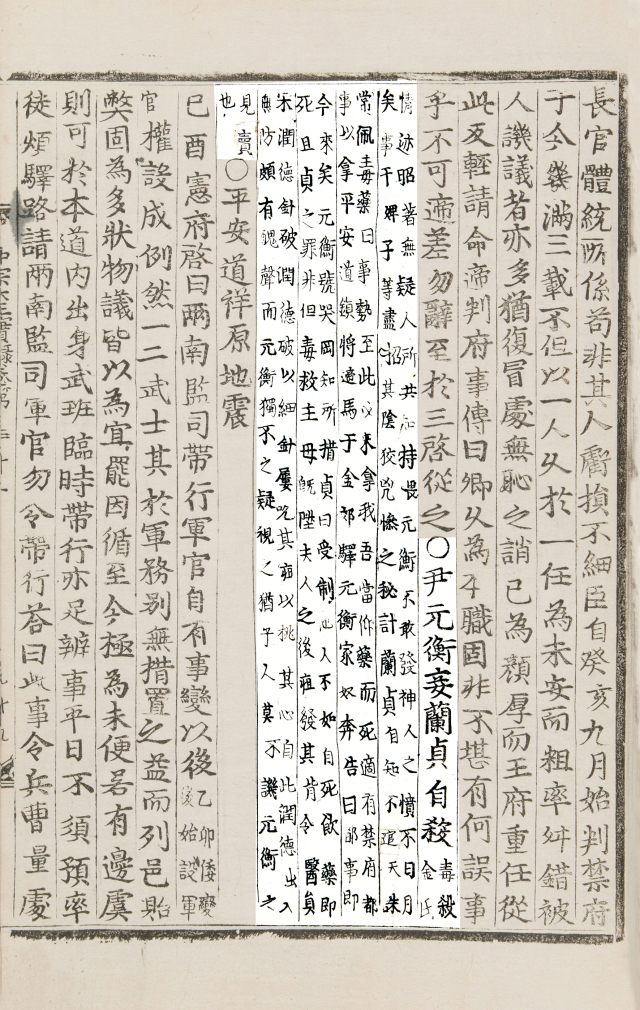 長官體統所係苟非其人虧損不細臣自癸亥九月始判禁府
于今幾滿三載不但以一人久於一任為未安而粗率舛錯被
人譏議者亦多猶復冒處無恥之誚已為顔厚而王府重任從
此又輕請命遆判府事傳曰卿久為本職固非不堪有何誤事
乎不可遞差勿辭至於三啓從之○尹元衡妾蘭貞自殺毒殺
金氏
情迹昭著無疑人所共知持畏元衡不敢發神人之憤不日月
矣事干婢子等盡招其陰狡兇慘之秘計蘭貞自知不逭天誅
常佩毒藥曰事勢至此必來拿我吾當仰藥而死適有禁府都
事以拿平安道鎭將遞馬于金郊驛元衡家奴奔告曰都事即
今來矣元衡號哭罔知所措貞曰受制於人不如自死飮藥即
死且貞之罪非但毒殺主母旣陞夫人之後疽發其背令醫員
宋潤德針破潤德破以細針屢吮其疽以挑其心自此潤德出入
無防頗有醜聲而元衡獨不之疑視之猶子人莫不譏元衡之
見賣
也
○平安道祥原地震
己酉憲府啓曰兩南監司帶行軍官自有事變以後乙卯倭變
後始設軍
官
權設成例然一二武士其於軍務別無措置之益而列邑貽
弊固為多狀物議皆以為宜罷因循至今極為未便若有邊虞
則可於本道內出身武班臨時帶行亦足辨事平日不須預率
徒煩驛路請兩南監司軍官勿令帶行答曰此事令兵曹量處